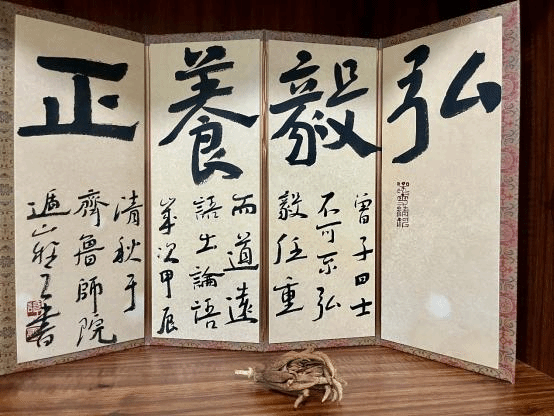 弘
毅
養
正
曾子曰士
不可不弘
毅任重
而道遠
語出論語
歲次甲辰
清秋于
齊魯師院
山書